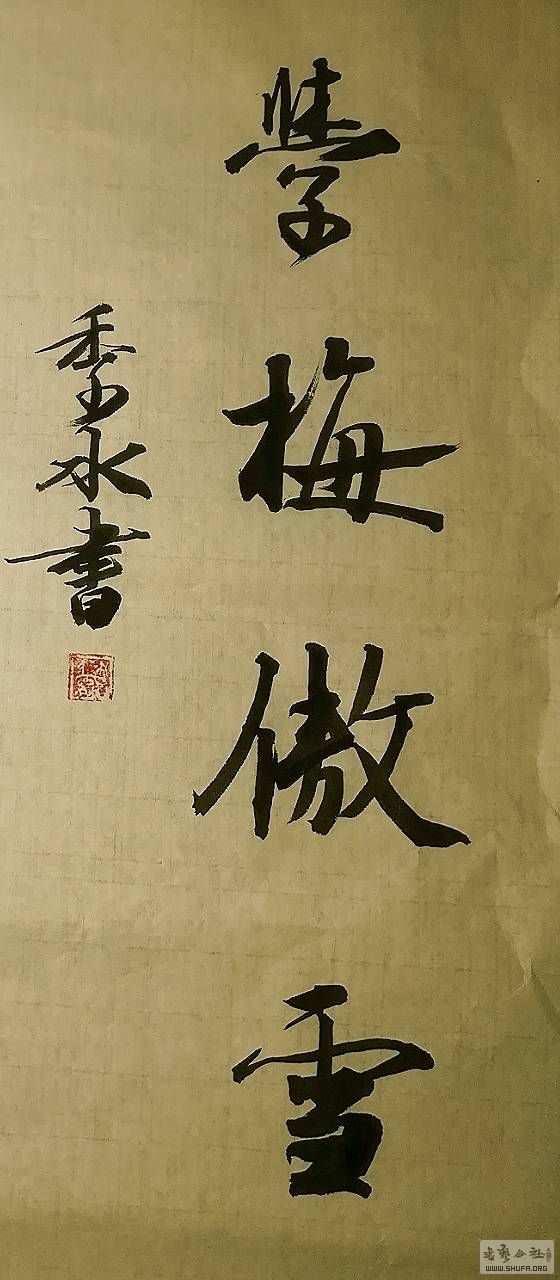 學梅傲雪
水書
公社
WWW.SHUFA.ORG